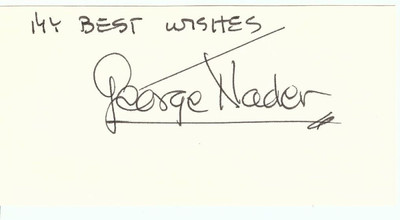 MY BEST WISHES
George Nader